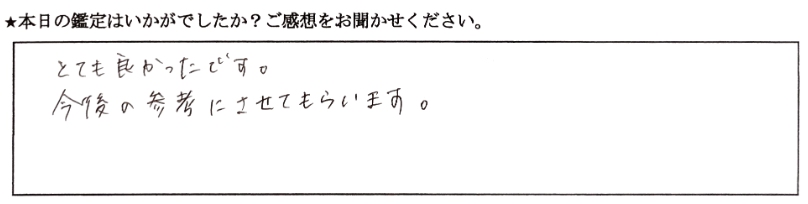 ★本日の鑑定はいかがでしたか？ご感想をお聞かせください。
とても良かったです。
今後の参考にさせてもらいます。